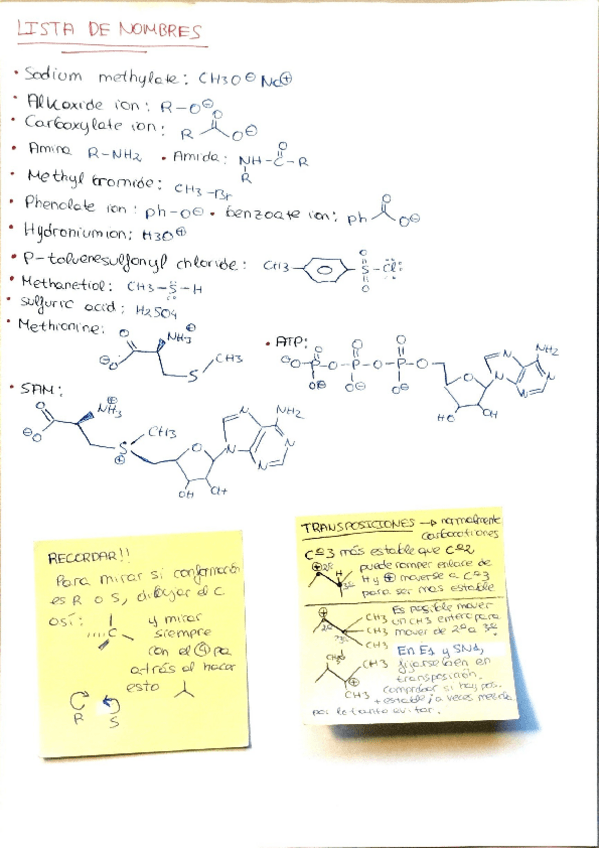 LISTA DE NOMBRES
• Sodium methylate: CH3O⊖ Na⊕
• Alkoxide ion: R-O⊖
• Carboxylate ion: R O O⊖
• Amina R-NH2 • Amida: NH-C-R O R
• Methyl bromide: CH3-Br
• Phenolate ion: ph-O⊖ • benzoate ion: ph O O⊖
• Hydroniumion: H3O⊕
• P-toluenesulfonyl chloride: CH3 S O O Cl
• Methanetiol: CH3-S-H
• Sulfuric acid: H2SO4
• Methionine: O ⊖O NH3 ⊕ S CH3
• ATP: ⊖O-P-O-P-O-P-O O O O O⊖ O⊖ O⊖ O HO OH N N N N NH2
• SAM: O ⊖O NH3 ⊕ S ⊕ CH3 O OH OH N N N N NH2
RECORDAR!!
Para mirar si conformación
es R o S, dibujar el C
así: C y mirar
siempre
con el ④ pa
atrás al hacer
esto
R S
TRANSPOSICIONES → normalmente
carbocationes
Cº3 más estable que Cº2
⊕ 2º H 3º puede romper enlace de
H y ⊕ moverse a Cº3
para ser más estable
⊕ 2º 3º CH3 CH3 CH3
Es posible mover
un CH3 entero para
mover de 2º a 3º
CH3 CH3 ⊕ CH3
En E1 y SN1,
fijarse bien en
transposición.
comprobar si hay pos.
+ estable; a veces mezcla
por lo tanto evitar.